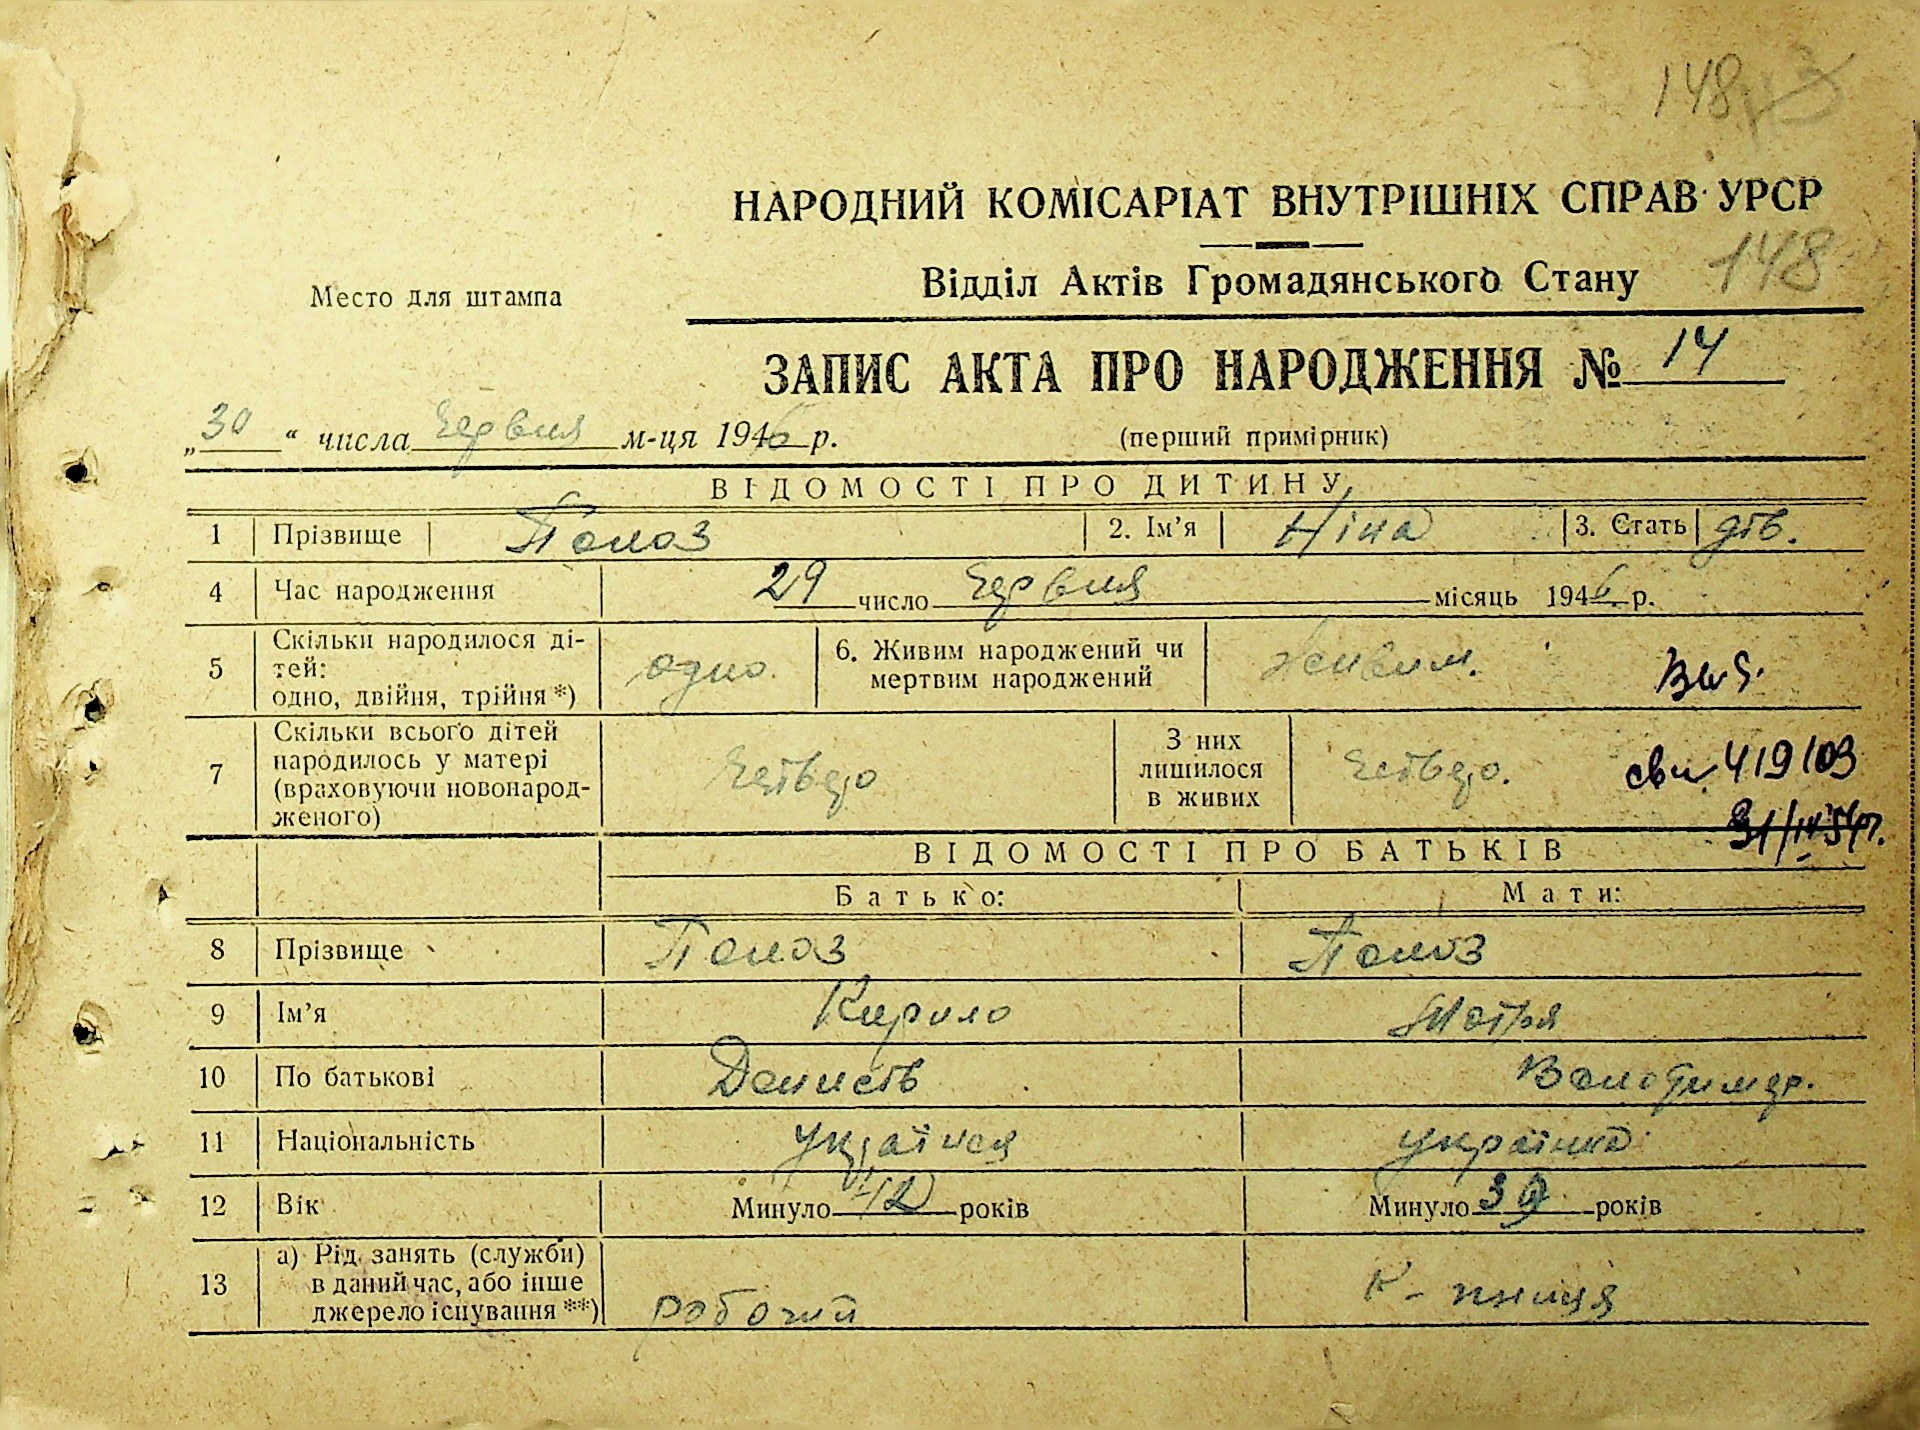 148
НАРОДНИЙ КОМІСАРІАТ ВНУТРІШНІХ СПРАВ УРСР
Місто для штампа
Відділ Актів Громадянського Стану
148
ЗАПИС АКТА ПРО НАРОДЖЕННЯ № 14
„30“ числа Червня м-ця 1946 р. (перший примірник)
ВІДОМОСТІ ПРО ДИТИНУ
1 Прізвище Полоз 2. Ім'я Ніна 3. Стать дів.
4 Час народження 29 число Червня місяць 1946 р.
5 Скільки народилося ді-
тей:
одно, двійня, трійня *) одно. 6. Живим народжений чи
мертвим народжений Живим.
7 Скільки всього дітей
народилось у матері
(враховуючи новонарод-
женого) Четверо З них
лишилося
в живих Четверо.
419103
ВІДОМОСТІ ПРО БАТЬКІВ
Батько: Мати:
8 Прізвище Полоз Полоз
9 Ім'я Кирило Мотря
10 По батькові Денисів Володимир.
11 Національність Українец Українка
12 Вік Минуло 42 років Минуло 39 років
13 а) Рід занять (служби)
в даний час, або інше
джерело існування **) робочий К-пниця